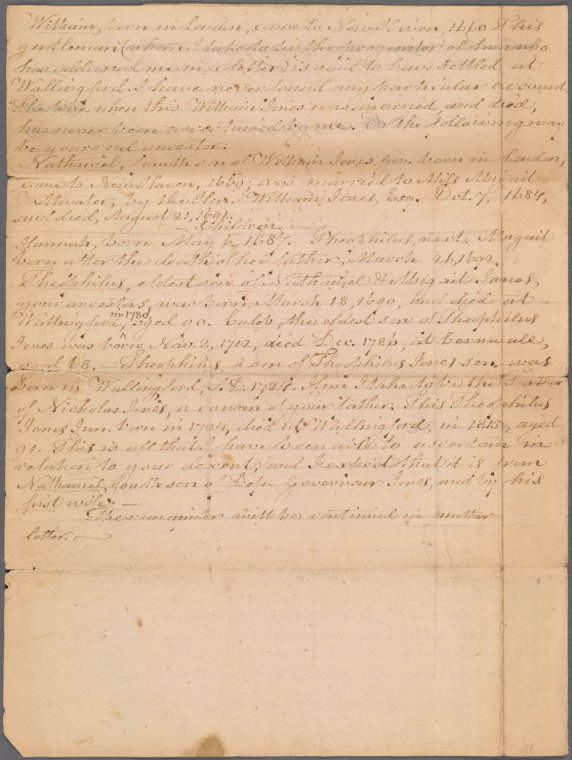 William, born in London, came to New Haven, 1660. This
gentleman (whom I take to be the progenitor of him who
has addressed me in a letter) is said to have settled at
Wallingford. I have never found any particular account.
The time when this William Jones was married and died,
has never been ascertained by me. Or the following may
be your real ancestor.
Nathaniel, fourth son of William Jones, Gov. born in London,
came to New Haven, 1660; was married to Miss Abigail
Atwater, by the Hon. William Jones, Esq. Oct. 7, 1684,
and died, August 21, 1691.
Children.
Hannah, born May 6, 1687. Theophilus, next. Abigail
born after the death of her father, March 26, 1692.
Theophilus, eldest son of Nathaniel & Abigail Jones,
your ancestors, was born March 18, 1690, and died at
Wallingford, in 1780, aged 90. Caleb, the eldest son of Theophilus
Jones was born, Nov. 3, 1712, died Dec. 1786, at Cornwall,
aged 68. Theophilus, a son of Theophilus Jones sen. was
born in Wallingford, A.D. 1724. Him I take to be the
of Nicholas Jones, a cousin of your father. This Theophilus
Jones Jun. born in 1724, died at Wallingford, in 1815, aged
91. This is all that I have been able to ascertain in
relation to your descent; and I expect that it is from
Nathaniel, fourth son of Dep. Governour Jones, and by his
first wife.
The remainder will be continued in another
letter.